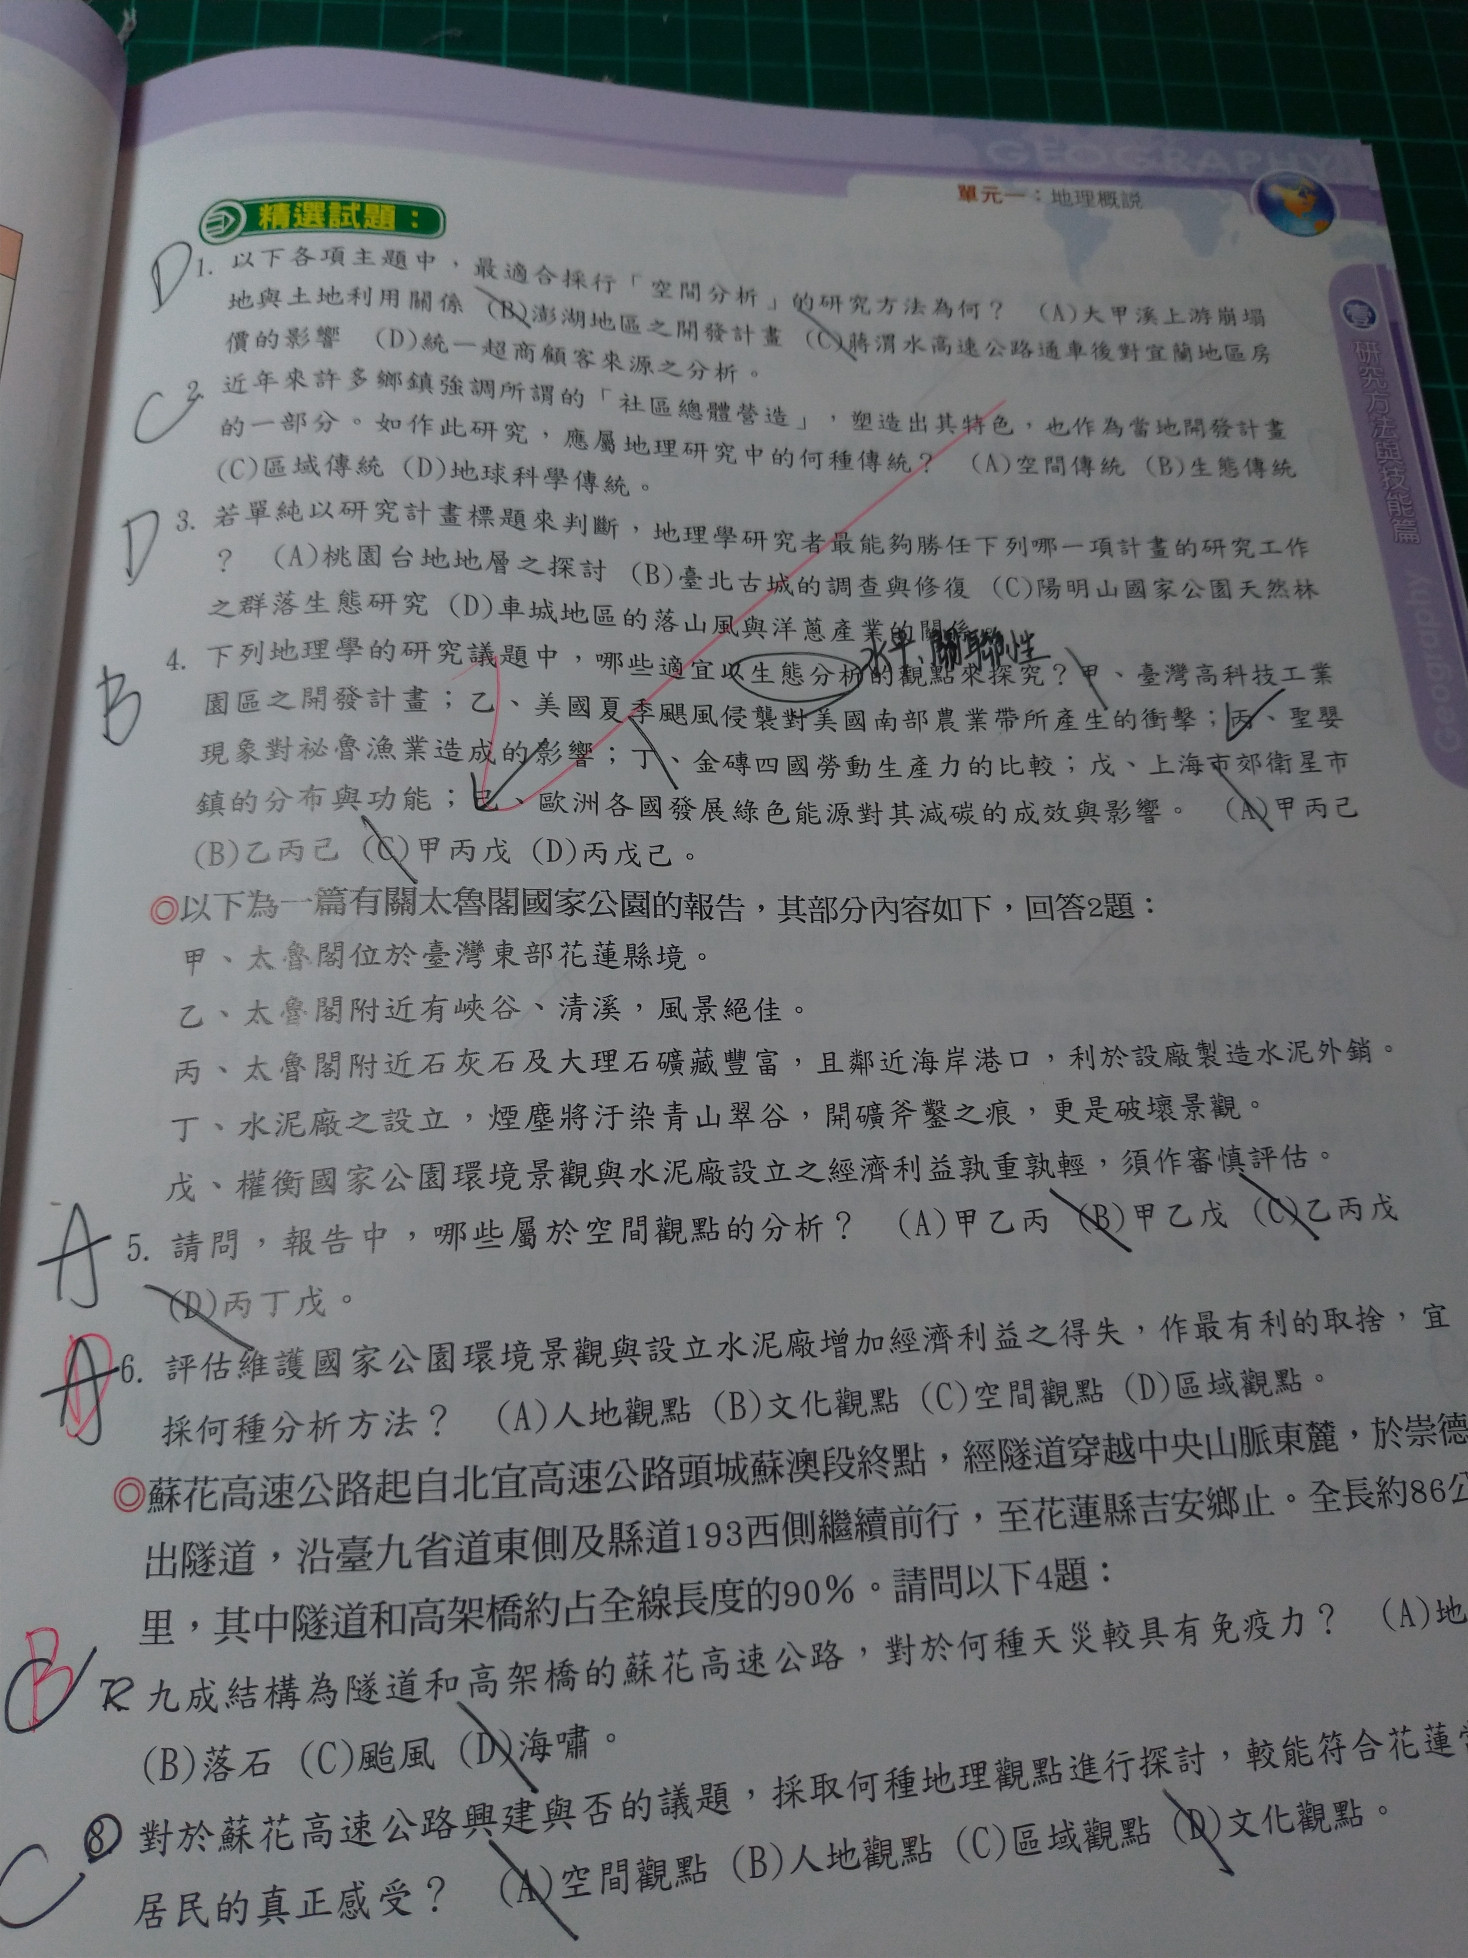 GEOGRAPHY
單元一：地理概說
精選試題：
D 1. 以下各項主題中，最適合採行「空間分析」的研究方法為何？ (A)大甲溪上游崩塌
地與土地利用關係 (B)澎湖地區之開發計畫 (C)蔣渭水高速公路通車後對宜蘭地區房
價的影響 (D)統一超商顧客來源之分析。
C 2. 近年來許多鄉鎮強調所謂的「社區總體營造」，塑造出其特色，也作為當地開發計畫
的一部分。如作此研究，應屬地理研究中的何種傳統？ (A)空間傳統 (B)生態傳統
(C)區域傳統 (D)地球科學傳統。
D 3. 若單純以研究計畫標題來判斷，地理學研究者最能夠勝任下列哪一項計畫的研究工作
？ (A)桃園台地地層之探討 (B)臺北古城的調查與修復 (C)陽明山國家公園天然林
之群落生態研究 (D)車城地區的落山風與洋蔥產業的關係。
水平、關聯性
B 4. 下列地理學的研究議題中，哪些適宜以生態分析的觀點來探究？甲、臺灣高科技工業
園區之開發計畫；乙、美國夏季颶風侵襲對美國南部農業帶所產生的衝擊；丙、聖嬰
現象對祕魯漁業造成的影響；丁、金磚四國勞動生產力的比較；戊、上海市郊衛星市
鎮的分布與功能；己、歐洲各國發展綠色能源對其減碳的成效與影響。 (A)甲丙己
(B)乙丙己 (C)甲丙戊 (D)丙戊己。
◎以下為一篇有關太魯閣國家公園的報告，其部分內容如下，回答2題：
甲、太魯閣位於臺灣東部花蓮縣境。
乙、太魯閣附近有峽谷、清溪，風景絕佳。
丙、太魯閣附近石灰石及大理石礦藏豐富，且鄰近海岸港口，利於設廠製造水泥外銷。
丁、水泥廠之設立，煙塵將汙染青山翠谷，開礦斧鑿之痕，更是破壞景觀。
戊、權衡國家公園環境景觀與水泥廠設立之經濟利益孰重孰輕，須作審慎評估。
A 5. 請問，報告中，哪些屬於空間觀點的分析？ (A)甲乙丙 (B)甲乙戊 (C)乙丙戊
(D)丙丁戊。
A D 6. 評估維護國家公園環境景觀與設立水泥廠增加經濟利益之得失，作最有利的取捨，宜
採何種分析方法？ (A)人地觀點 (B)文化觀點 (C)空間觀點 (D)區域觀點。
◎蘇花高速公路起自北宜高速公路頭城蘇澳段終點，經隧道穿越中央山脈東麓，於崇德
出隧道，沿臺九省道東側及縣道193西側繼續前行，至花蓮縣吉安鄉止。全長約86公
里，其中隧道和高架橋約占全線長度的90%。請問以下4題：
C B 7. 九成結構為隧道和高架橋的蘇花高速公路，對於何種天災較具有免疫力？ (A)地
(B)落石 (C)颱風 (D)海嘯。
C 8. 對於蘇花高速公路興建與否的議題，採取何種地理觀點進行探討，較能符合花蓮
居民的真正感受？ (A)空間觀點 (B)人地觀點 (C)區域觀點 (D)文化觀點。
壹
研究方法與技能篇
Geography